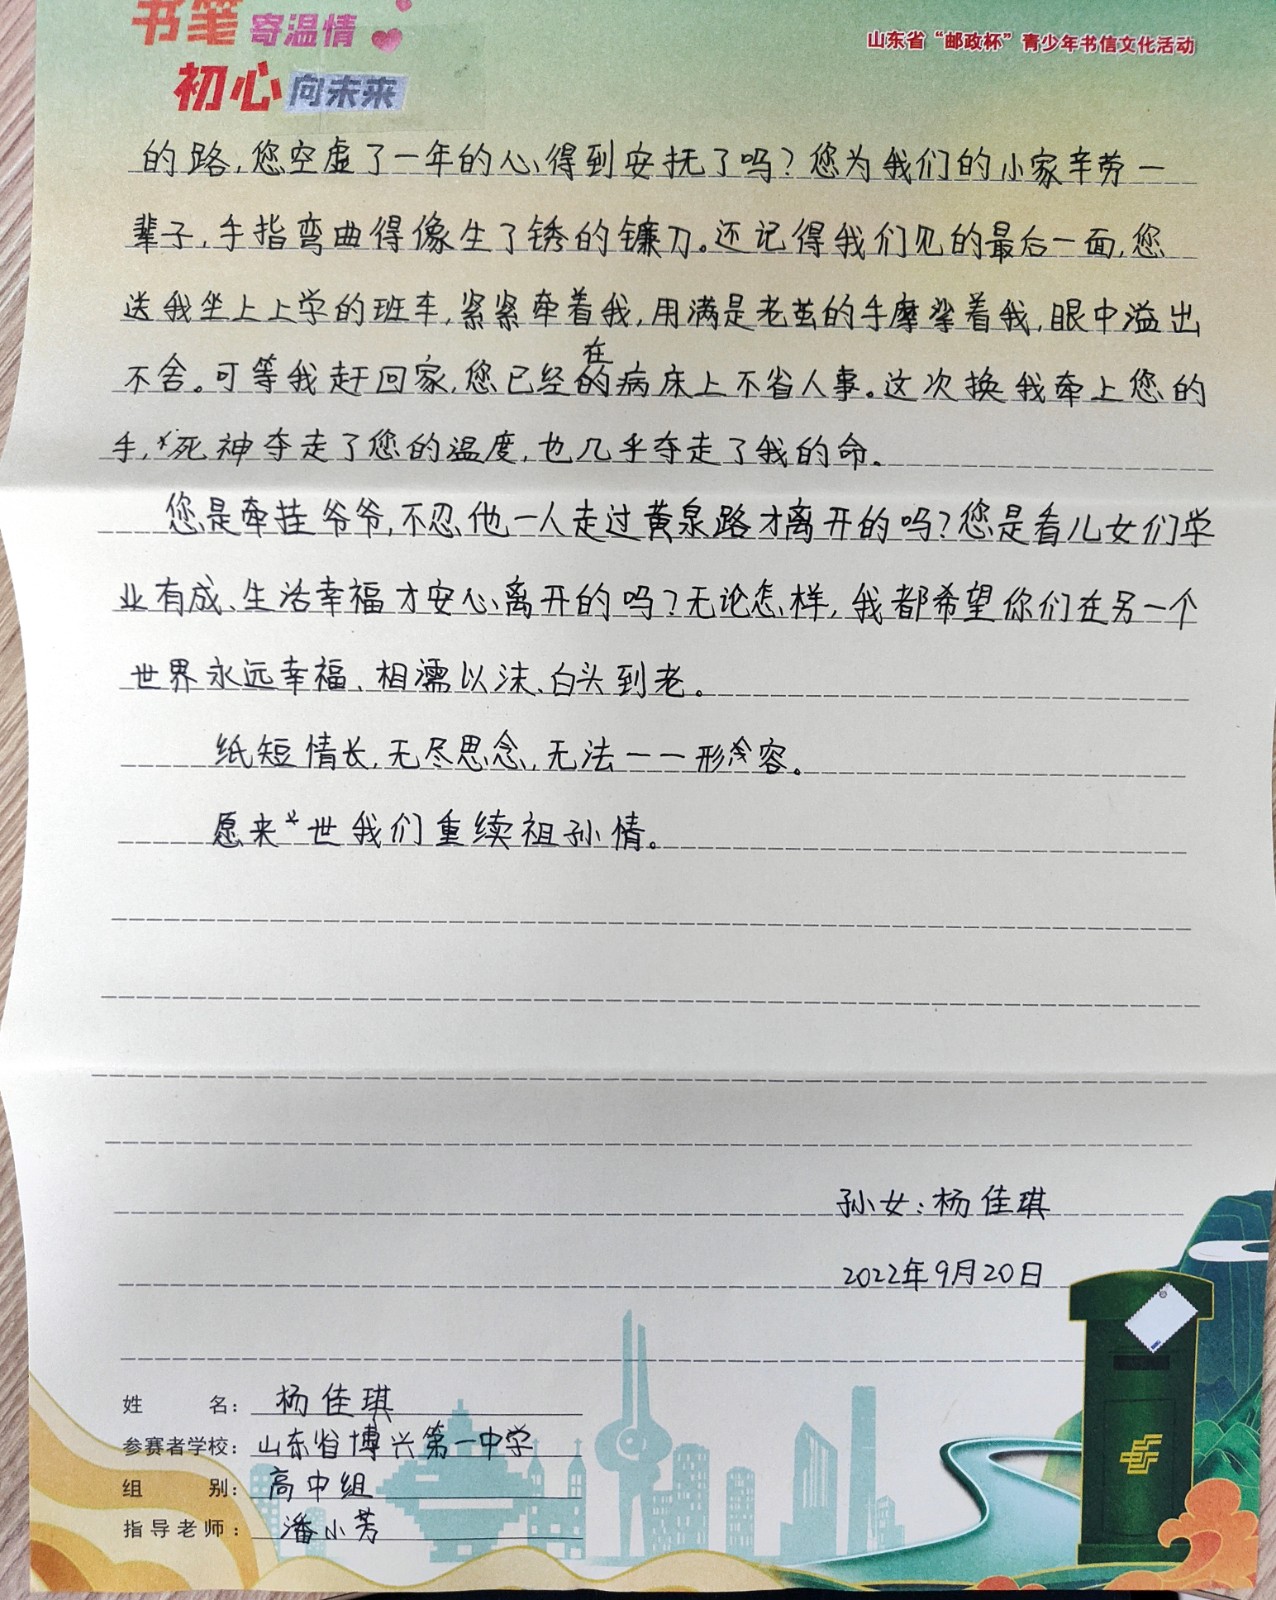 书笔寄温情
初心向未来
山东省“邮政杯”青少年书信文化活动
的路,您空虚了一年的心得到安抚了吗?您为我们的小家辛劳一
辈子,手指弯曲得像生了锈的镰刀。还记得我们见的最后一面,您
送我坐上上学的班车,紧紧牵着我,用满是老茧的手摩挲着我,眼中溢出
在
不舍。可等我赶回家,您已经的病床上不省人事。这次换我牵上您的
手,死神夺走了您的温度,也几乎夺走了我的命。
您是牵挂爷爷,不忍他一人走过黄泉路才离开的吗?您是看儿女们学
业有成、生活幸福才安心离开的吗?无论怎样,我都希望你们在另一个
世界永远幸福、相濡以沫、白头到老。
纸短情长,无尽思念,无法一一形容。
愿来世我们重续祖孙情。
孙女:杨佳琪
2022年9月20日
姓名:杨佳琪
参赛者学校:山东省博兴第一中学
组别:高中组
指导老师:潘小芳